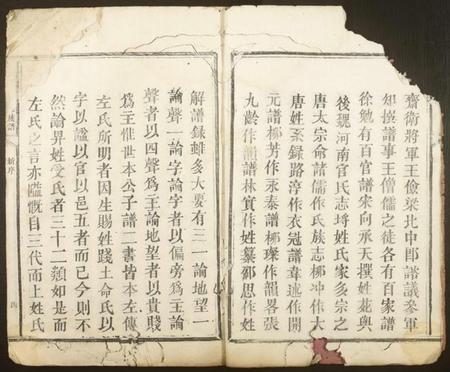 齋衛將軍王儉梁北中郎諮議參軍
知撰譜事王僧儒之徒各有百家譜
徐勉有百官譜宋何承天撰姓苑與
後魏河南官氏志垺姓氏家多宗之
唐太宗命諸儒作氏族志柳冲作大
唐姓系錄路淳作衣冠譜韋述作開
元譜柳芳作永泰譜柳璨作韻畧張
九齡作韻譜林寳作姓纂邵思作姓
解譜錄雖多大要有三一論地望一
論聲一論字論字者以偏旁為主論
聲者以四聲為主論地望者以貴賤
為主惟世本公子譜二書皆本左傳
左氏所明者因生賜姓踐土命氏以
字以謚以官以邑五者而已今則不
然論昇姓受氏者三十二類如是而
左氏之言亦隘慨自三代而上姓氏
族譜
新序
四